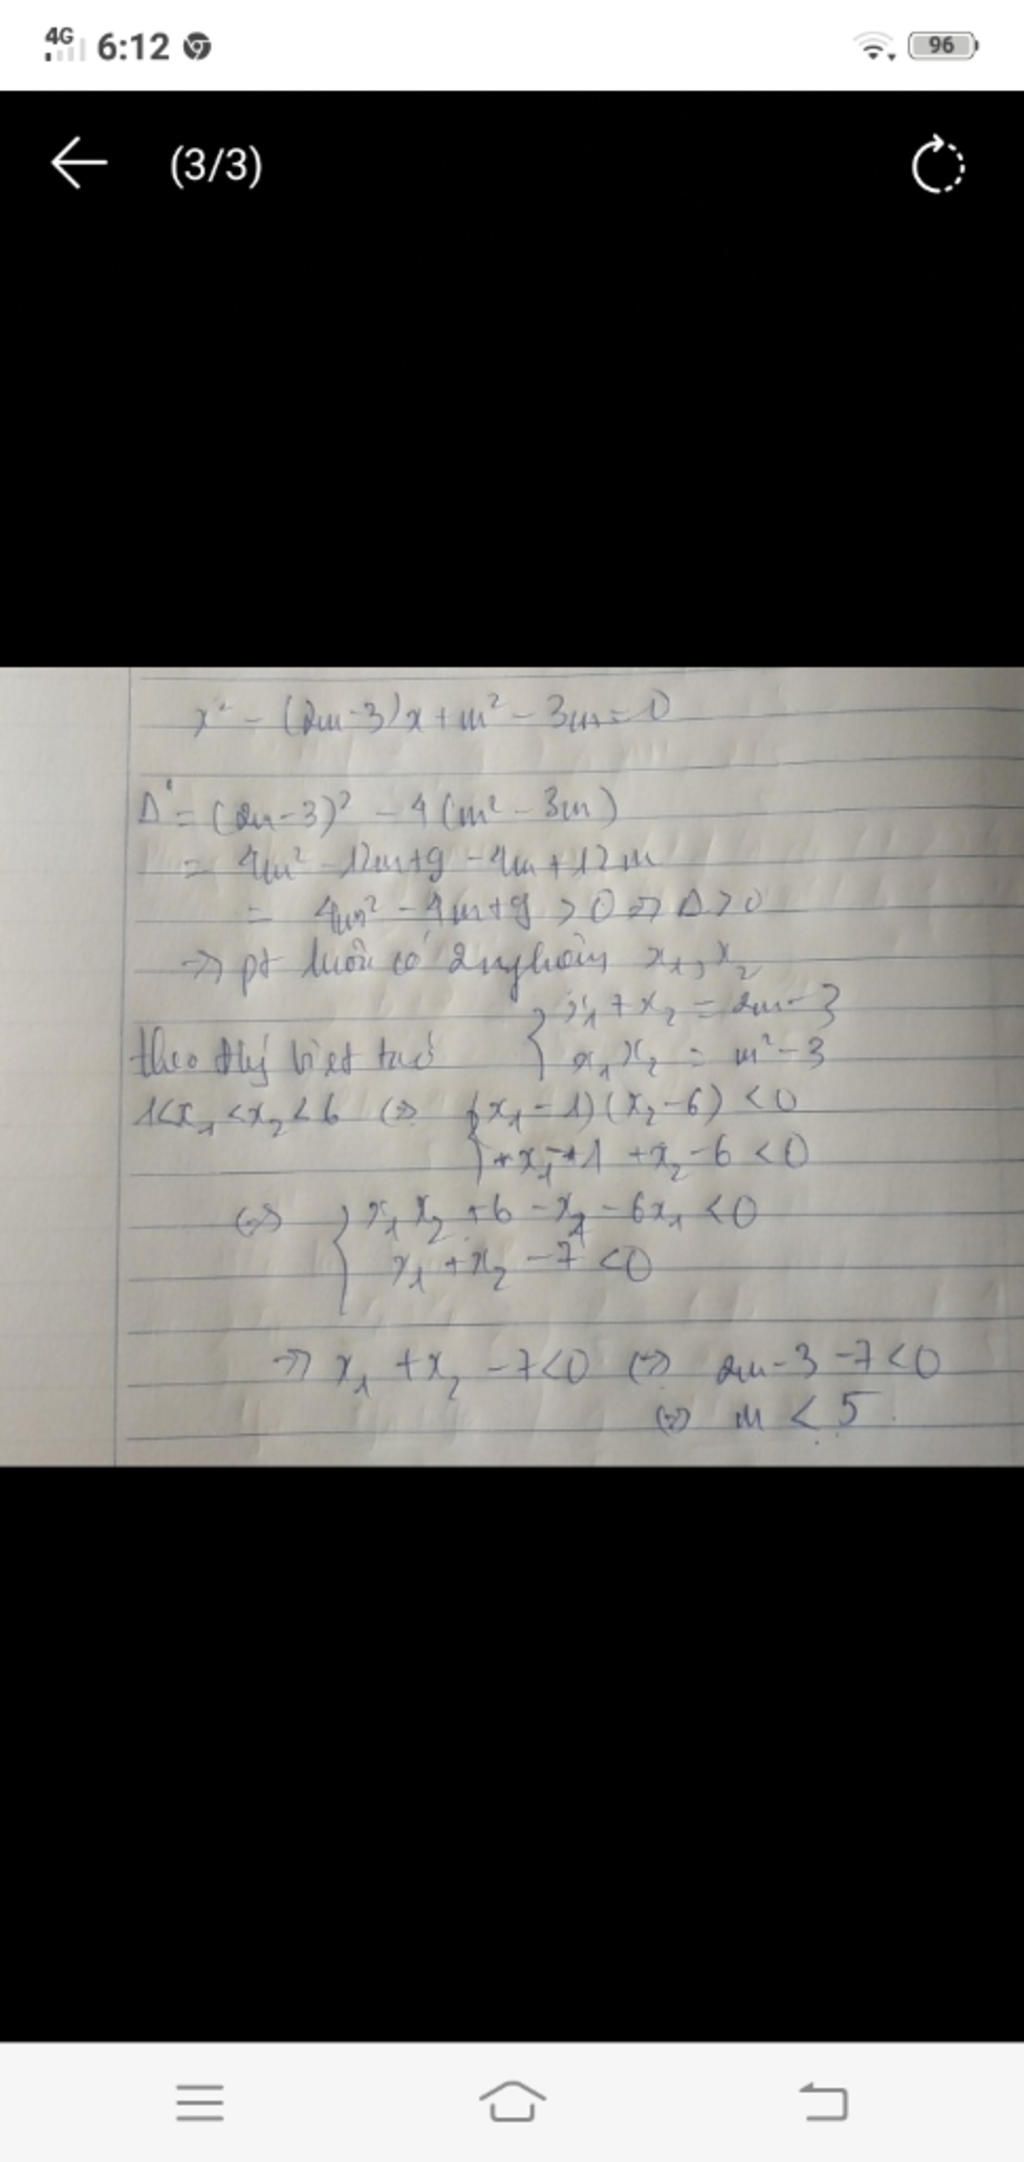 4G 6:12 96
(3/3)
x² - (2m-3)x + m² - 3m = 0
Δ' = (2m-3)² - 4(m² - 3m)
= 4m² - 12m+9 - 4m + 12m
= 4m² - 4m+9 > 0 => Δ>0
=> pt luôn có 2 nghiệm x₁, x₂
{ x₁ + x₂ = 2m-3
theo hệ thức viet ta có { x₁x₂ = m²-3
1<x₁<x₂<6 <=> { (x₁-1)(x₂-6) <0
x₁-1 + x₂-6 <0
<=> { x₁x₂ +6 -x₂ -6x₁ <0
x₁ + x₂ -7 <0
=> x₁ + x₂ -7<0 <=> 2m-3-7<0
<=> m < 5